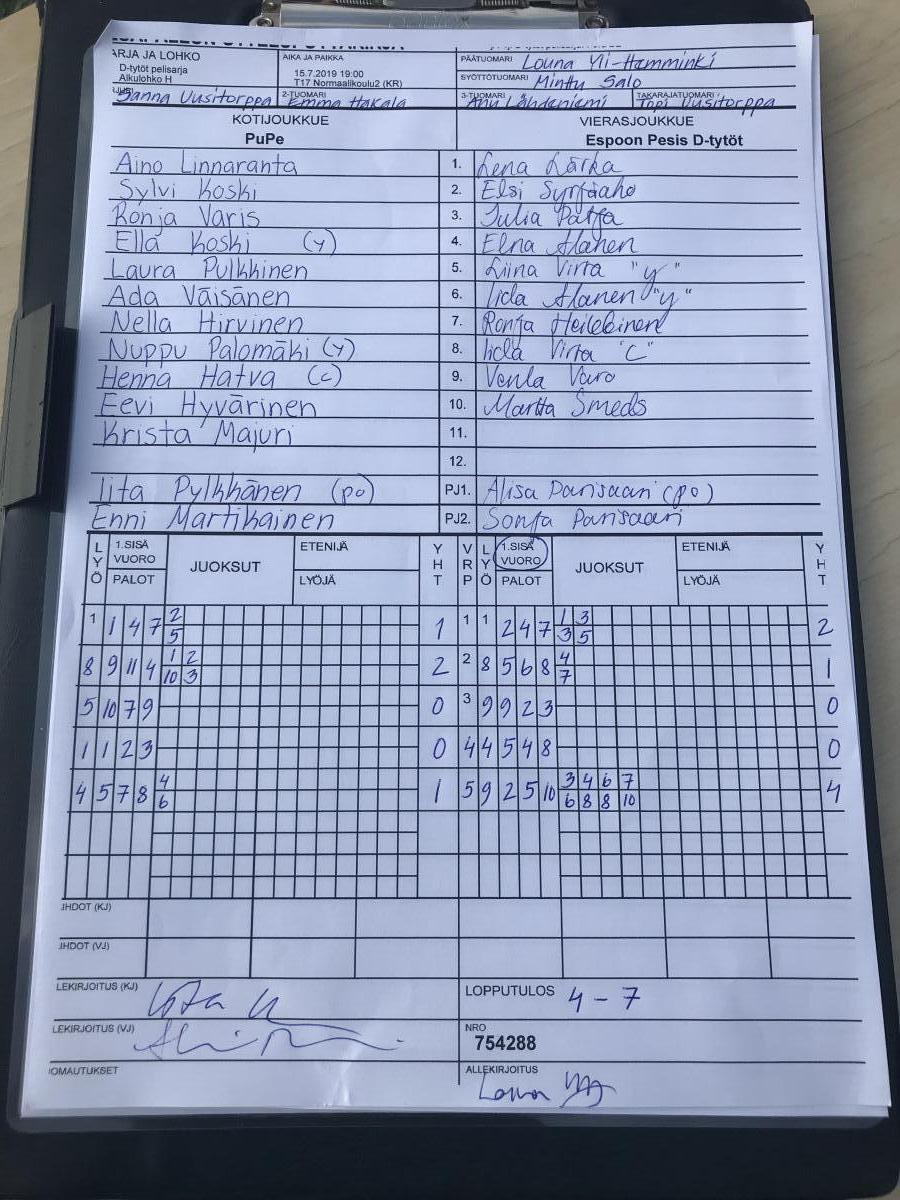 ARJA JA LOHKO
D-tytöt pelisarja
Alkulohko H
AIKA JA PAIKKA
15.7.2019 19:00
T17 Normaalikoulu2 (KR)
PÄÄTUOMARI Louna Yli-Hamminki
SYÖTTÖTUOMARI Minttu Salo
Sanna Uusitorppa
2-TUOMARI Emma Hakala
3-TUOMARI Anu Lähdeniemi
TAKARAJATUOMARI Topi Uusitorppa
KOTIJOUKKUE VIERASJOUKKUE
PuPe Espoon Pesis D-tytöt
Aino Linnaranta 1. Lena Lärka
Sylvi Koski 2. Elsi Syrjäaho
Ronja Varis 3. Julia Patja
Ella Koski (y) 4. Elna Alanen
Laura Pulkkinen 5. Liina Virta "y"
Ada Väisänen 6. Iida Alanen "y"
Nella Hirvinen 7. Ronja Heilekinen
Nuppu Palomäki (y) 8. Iida Virta "C"
Henna Hatva (c) 9. Venla Varo
Eevi Hyvärinen 10. Martta Smeds
Krista Majuri 11.
12.
Iita Pylkkänen (po) PJ1. Alisa Parisaari (po)
Enni Martikainen PJ2. Sonja Parisaari
LYÖ 1.SISÄ VUORO PALOT JUOKSUT ETENIJÄ LYÖJÄ YHT VRP LYÖ 1.SISÄ VUORO PALOT JUOKSUT ETENIJÄ LYÖJÄ YHT
1 1 4 7 2/5 1 1 1 2 4 7 1/3 3/5 2
8 9 11 4 1/10 2/3 2 2 8 5 6 8 4/7 1
5 10 7 9 0 3 9 9 2 3 0
1 1 2 3 0 4 4 5 4 8 0
4 5 7 8 4/6 1 5 9 2 5 10 3/6 4/8 6/8 7/10 4
JHDOT (KJ)
JHDOT (VJ)
LEKIRJOITUS (KJ)
LOPPUTULOS 4 - 7
LEKIRJOITUS (VJ)
NRO
754288
OMAUTUKSET
ALLEKIRJOITUS